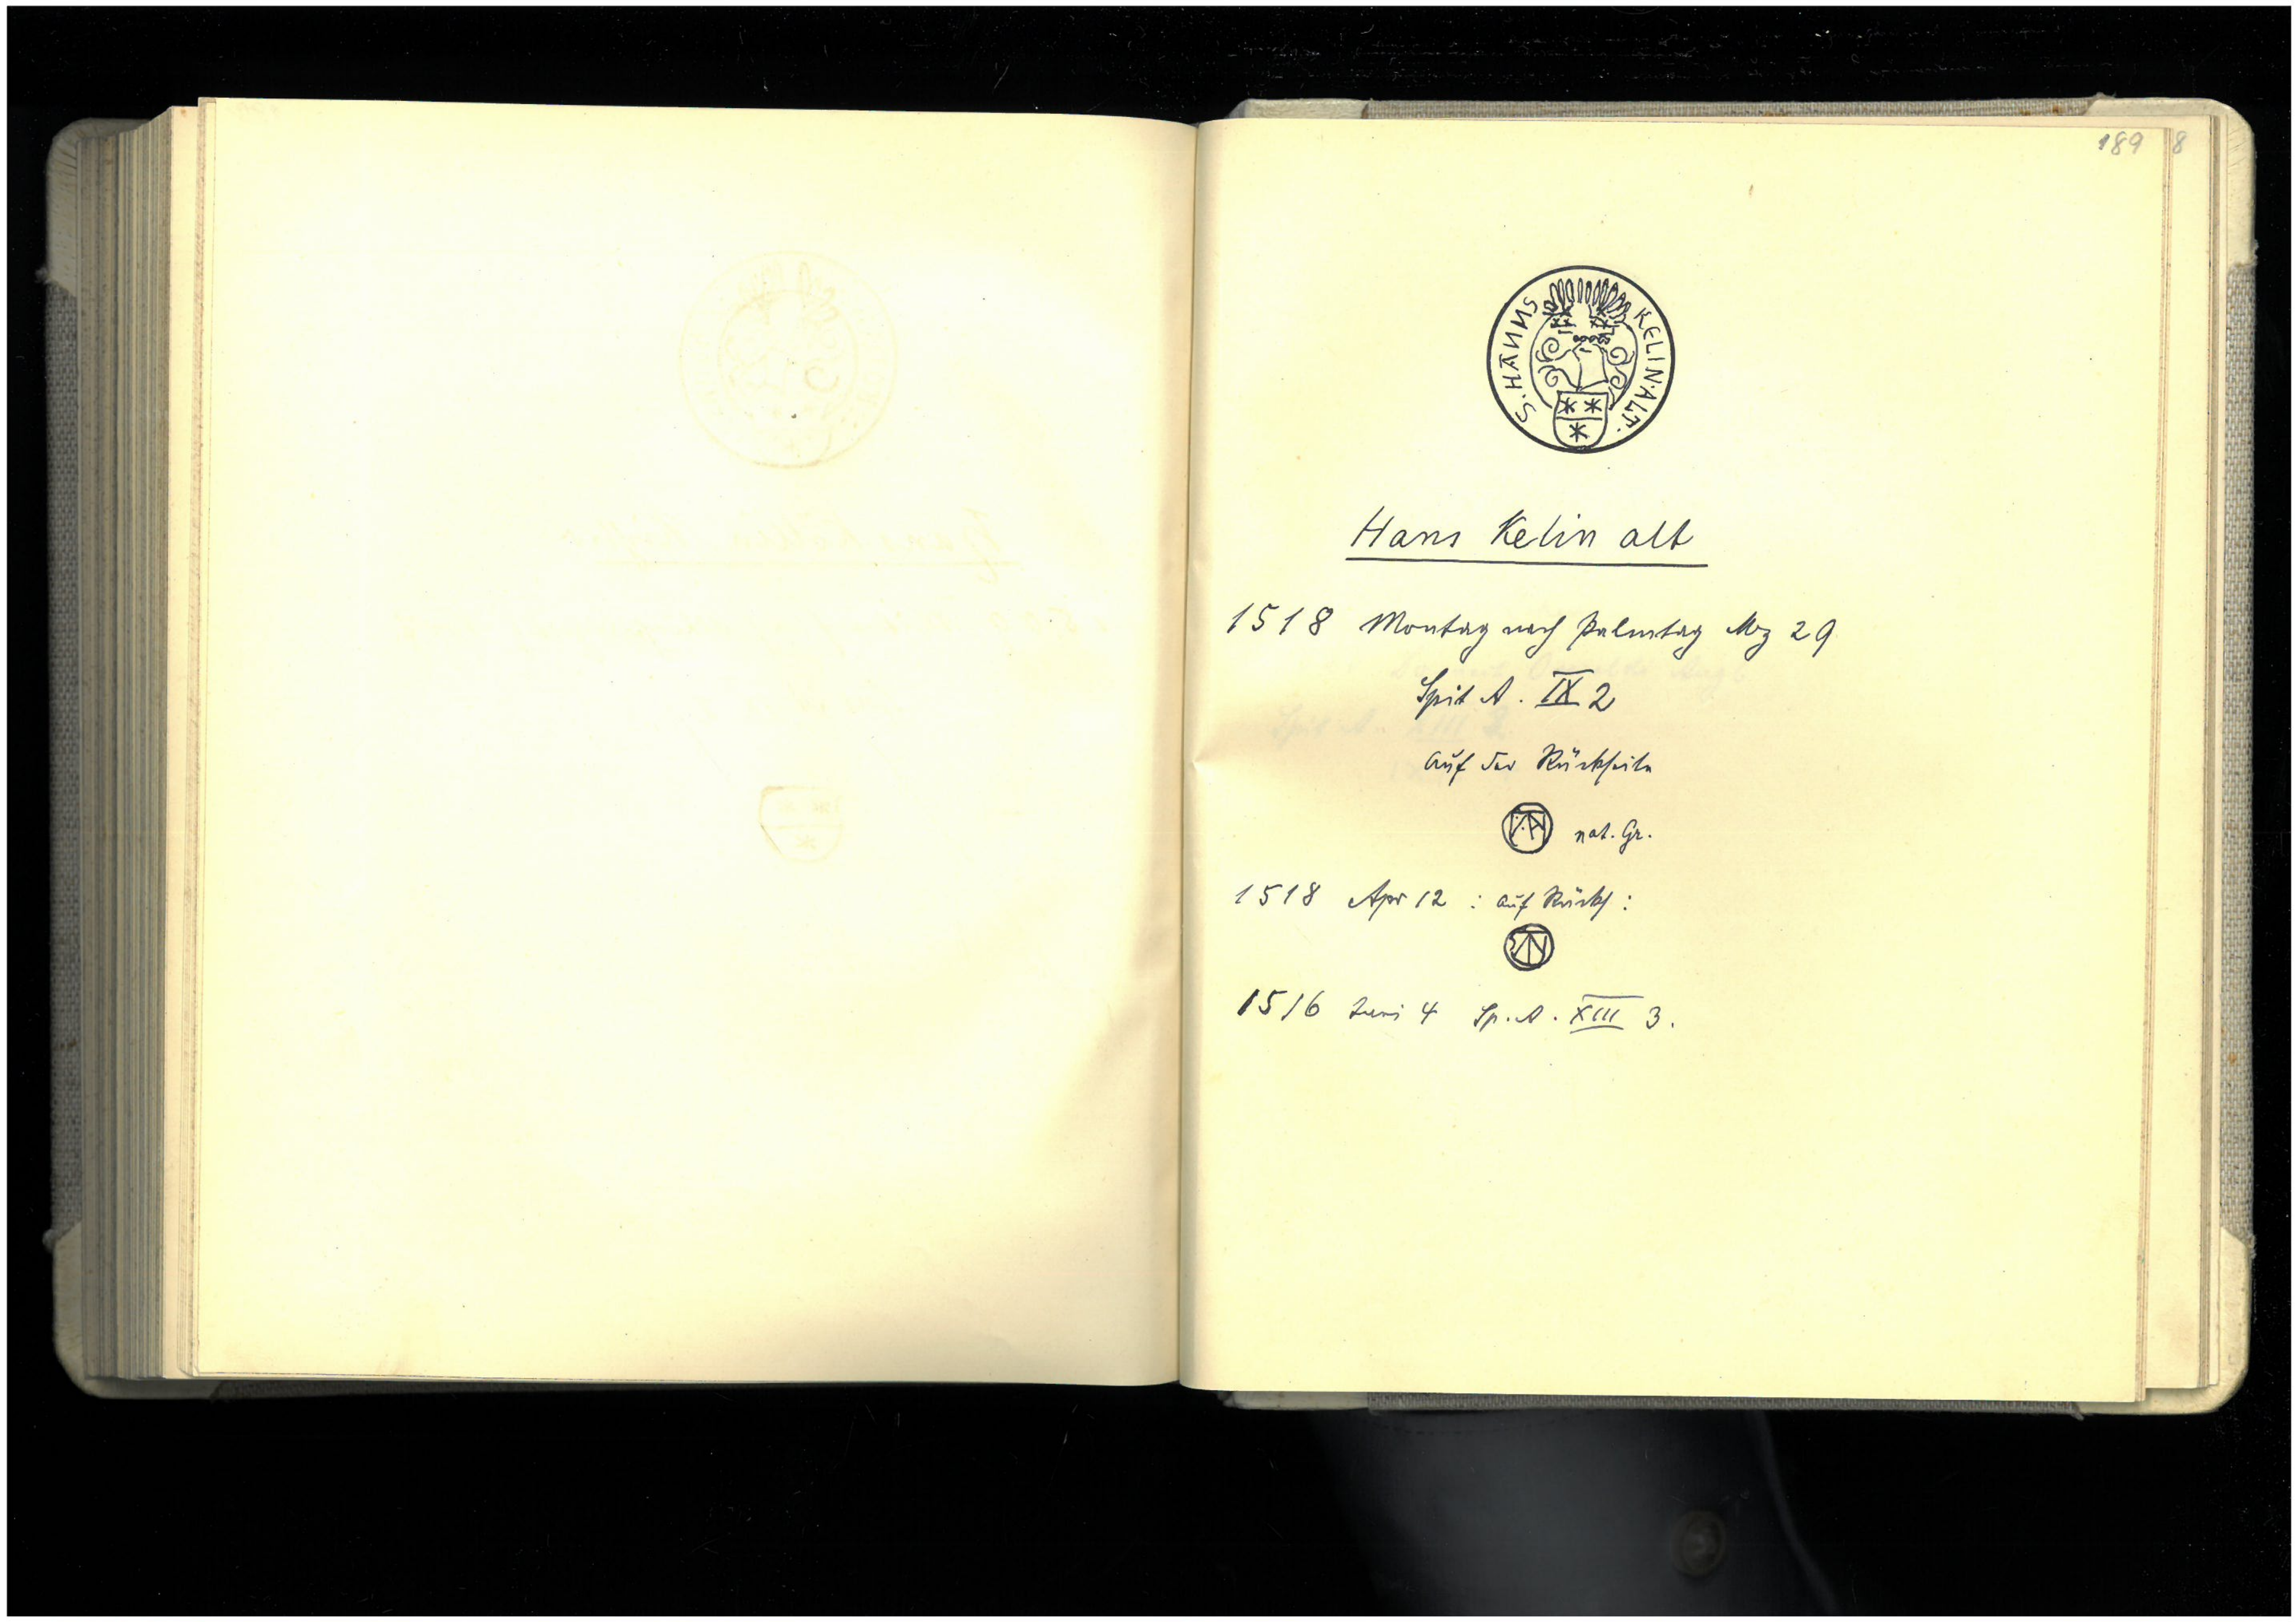 189
8
S. HANNS KELIN. ALT.
Hans Kelin alt
1518 Montag nach Palmtag Mrz 29
Spit A. IX 2
auf der Rückseite
nat. Gr.
1518 Apr 12 : auf Rücks :
1516 Juni 4 Sp. A. XIII 3.